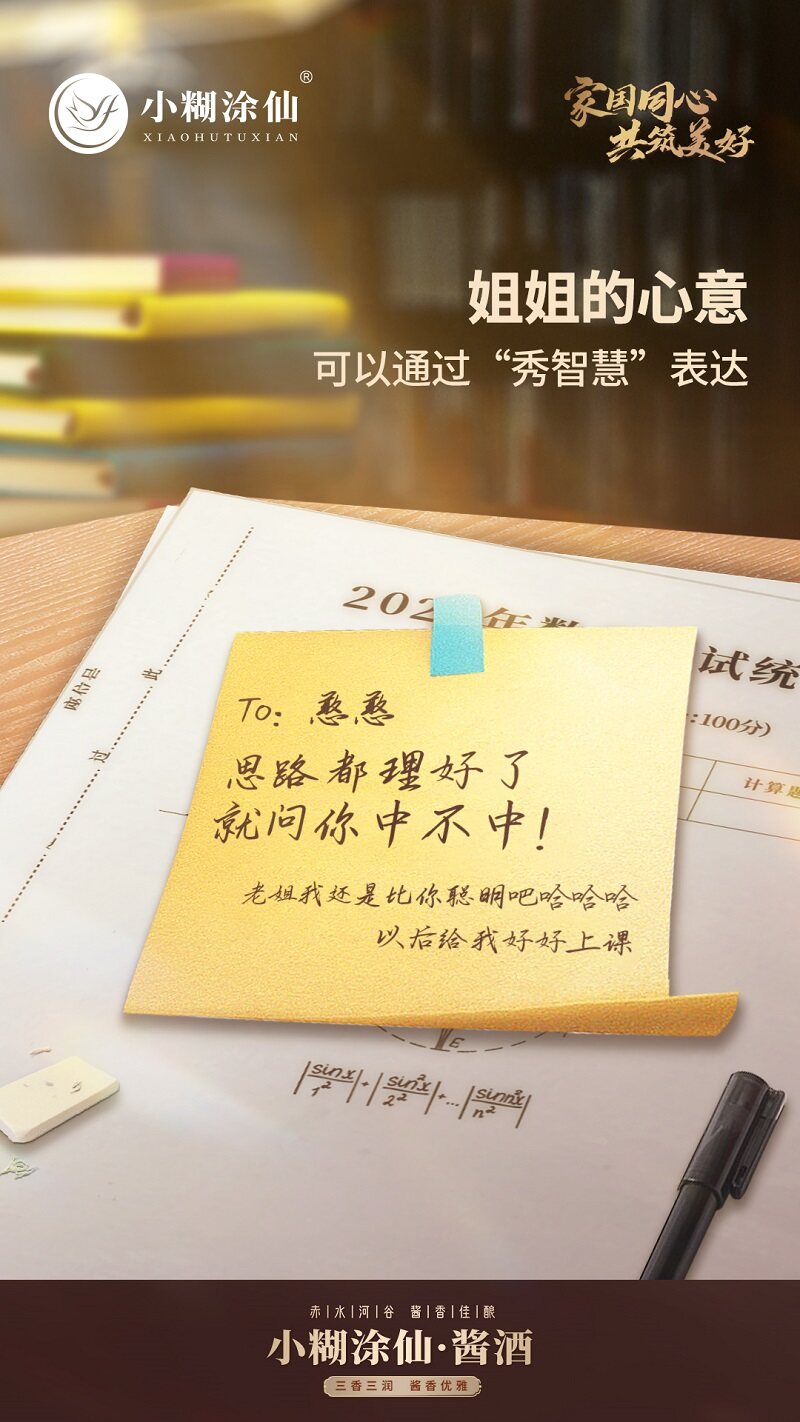 小糊涂仙®
XIAOHUTUXIAN
家国同心
共筑美好
姐姐的心意
可以通过“秀智慧”表达
202
年数
试统
:100分)
计算题
此
过
To: 憨憨
思路都理好了
就问你中不中!
老姐我还是比你聪明吧哈哈哈
以后给我好好上课
E
|sinx/1²|+|sin²x/2²|+...|sinn²x/n²|
赤|水|河|谷 酱|香|佳|酿
小糊涂仙·酱酒
三香三润 酱香优雅